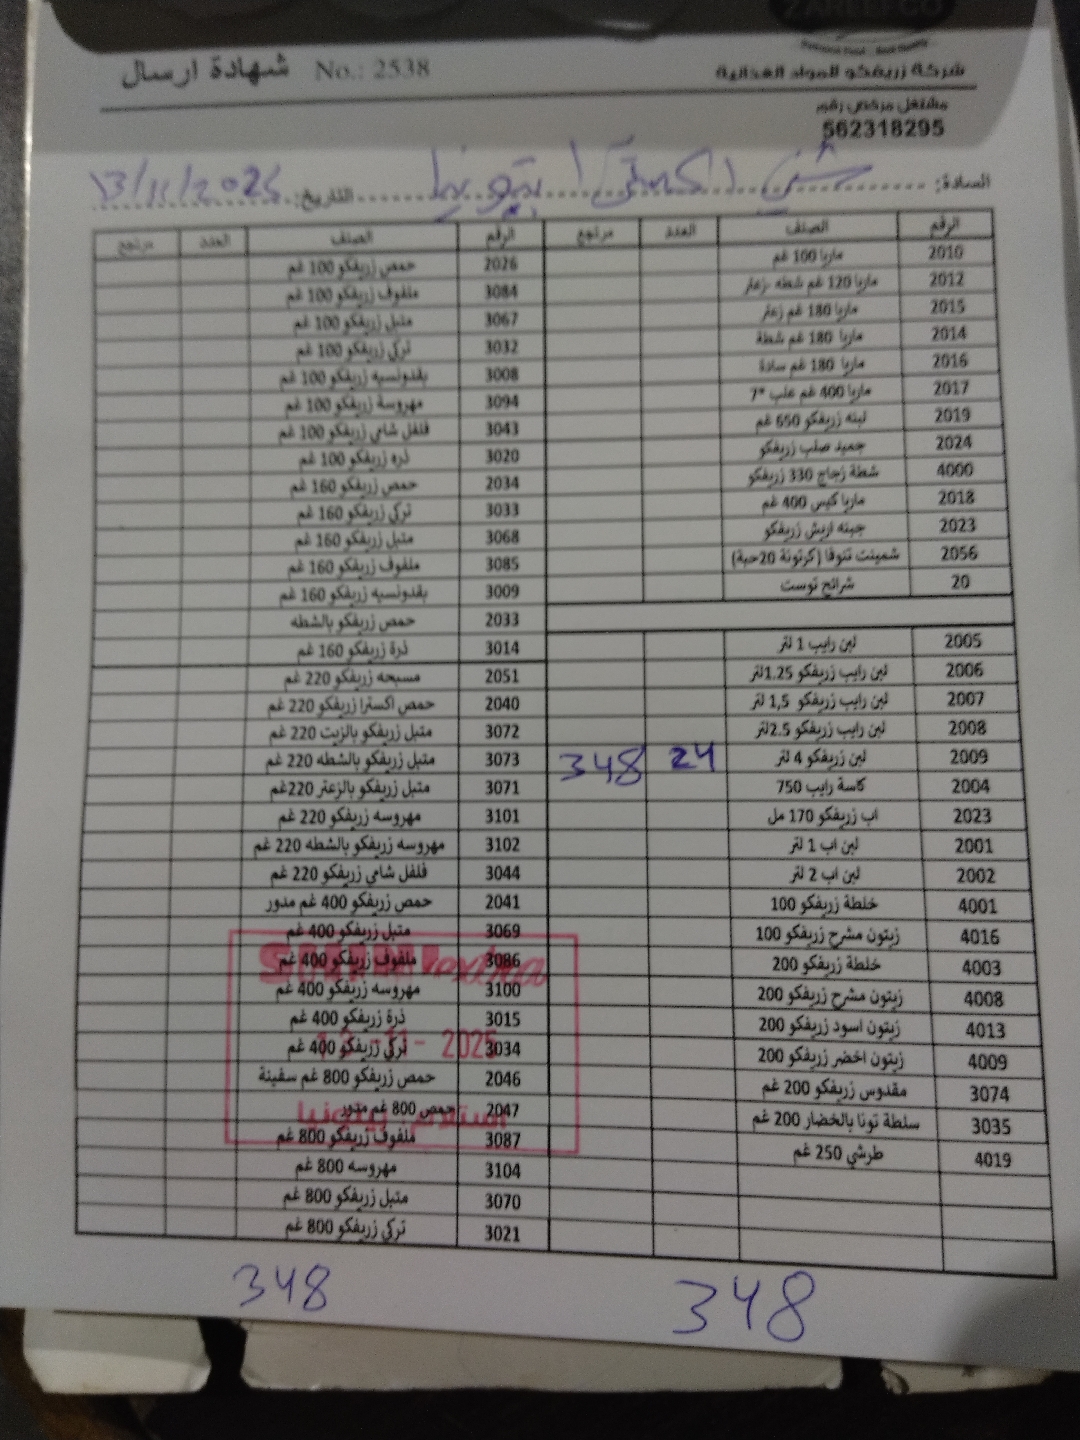 ZAREEFCO
شهادة ارسال No.: 2538
شركة زريفكو للمواد الغذائية
مشتغل مرخص رقم
562318295
السادة: التاريخ: 13/11/2025
الرقم الصنف العدد مرتجع
2010 ماريا 100 غم
2012 ماريا 120 غم شطه -زعتر
2015 ماريا 180 غم زعتر
2014 ماريا 180 غم شطة
2016 ماريا 180 غم سادة
2017 ماريا 400 غم علب *7
2019 لبنه زريفكو 650 غم
2024 جميد صلب زريفكو
4000 شطة زجاج 330 زريفكو
2018 ماريا كيس 400 غم
2023 جبنه اريش زريفكو
2056 شمينت تنوفا (كرتونة 20حبة)
20 شرائح توست
2005 لبن رايب 1 لتر
2006 لبن رايب زريفكو 1.25لتر
2007 لبن رايب زريفكو 1,5 لتر
2008 لبن رايب زريفكو 2.5لتر
2009 لبن زريفكو 4 لتر 24 348
2004 كاسة رايب 750
2023 اب زريفكو 170 مل
2001 لبن اب 1 لتر
2002 لبن اب 2 لتر
4001 خلطة زريفكو 100
4016 زيتون مشرح زريفكو 100
4003 خلطة زريفكو 200
4008 زيتون مشرح زريفكو 200
4013 زيتون اسود زريفكو 200
4009 زيتون اخضر زريفكو 200
3074 مقدوس زريفكو 200 غم
3035 سلطة تونا بالخضار 200 غم
4019 طرشي 250 غم
الرقم الصنف العدد مرتجع
2026 حمص زريفكو 100 غم
3084 ملفوف زريفكو 100 غم
3067 متبل زريفكو 100 غم
3032 تركي زريفكو 100 غم
3008 بقدونسيه زريفكو 100 غم
3094 مهروسة زريفكو 100 غم
3043 فلفل شامي زريفكو 100 غم
3020 ذره زريفكو 100 غم
2034 حمص زريفكو 160 غم
3033 تركي زريفكو 160 غم
3068 متبل زريفكو 160 غم
3085 ملفوف زريفكو 160 غم
3009 بقدونسيه زريفكو 160 غم
2033 حمص زريفكو بالشطه
3014 ذرة زريفكو 160 غم
2051 مسبحه زريفكو 220 غم
2040 حمص اكسترا زريفكو 220 غم
3072 متبل زريفكو بالزيت 220 غم
3073 متبل زريفكو بالشطه 220 غم
3071 متبل زريفكو بالزعتر 220غم
3101 مهروسه زريفكو 220 غم
3102 مهروسه زريفكو بالشطه 220 غم
3044 فلفل شامي زريفكو 220 غم
2041 حمص زريفكو 400 غم مدور
3069 متبل زريفكو 400 غم
3086 ملفوف زريفكو 400 غم
3100 مهروسه زريفكو 400 غم
3015 ذرة زريفكو 400 غم
3034 تركي زريفكو 400 غم
2046 حمص زريفكو 800 غم سفينة
2047 حمص 800 غم مدور
3087 ملفوف زريفكو 800 غم
3104 مهروسه 800 غم
3070 متبل زريفكو 800 غم
3021 تركي زريفكو 800 غم
extra
13 - 11 - 2025
استلام
348 348